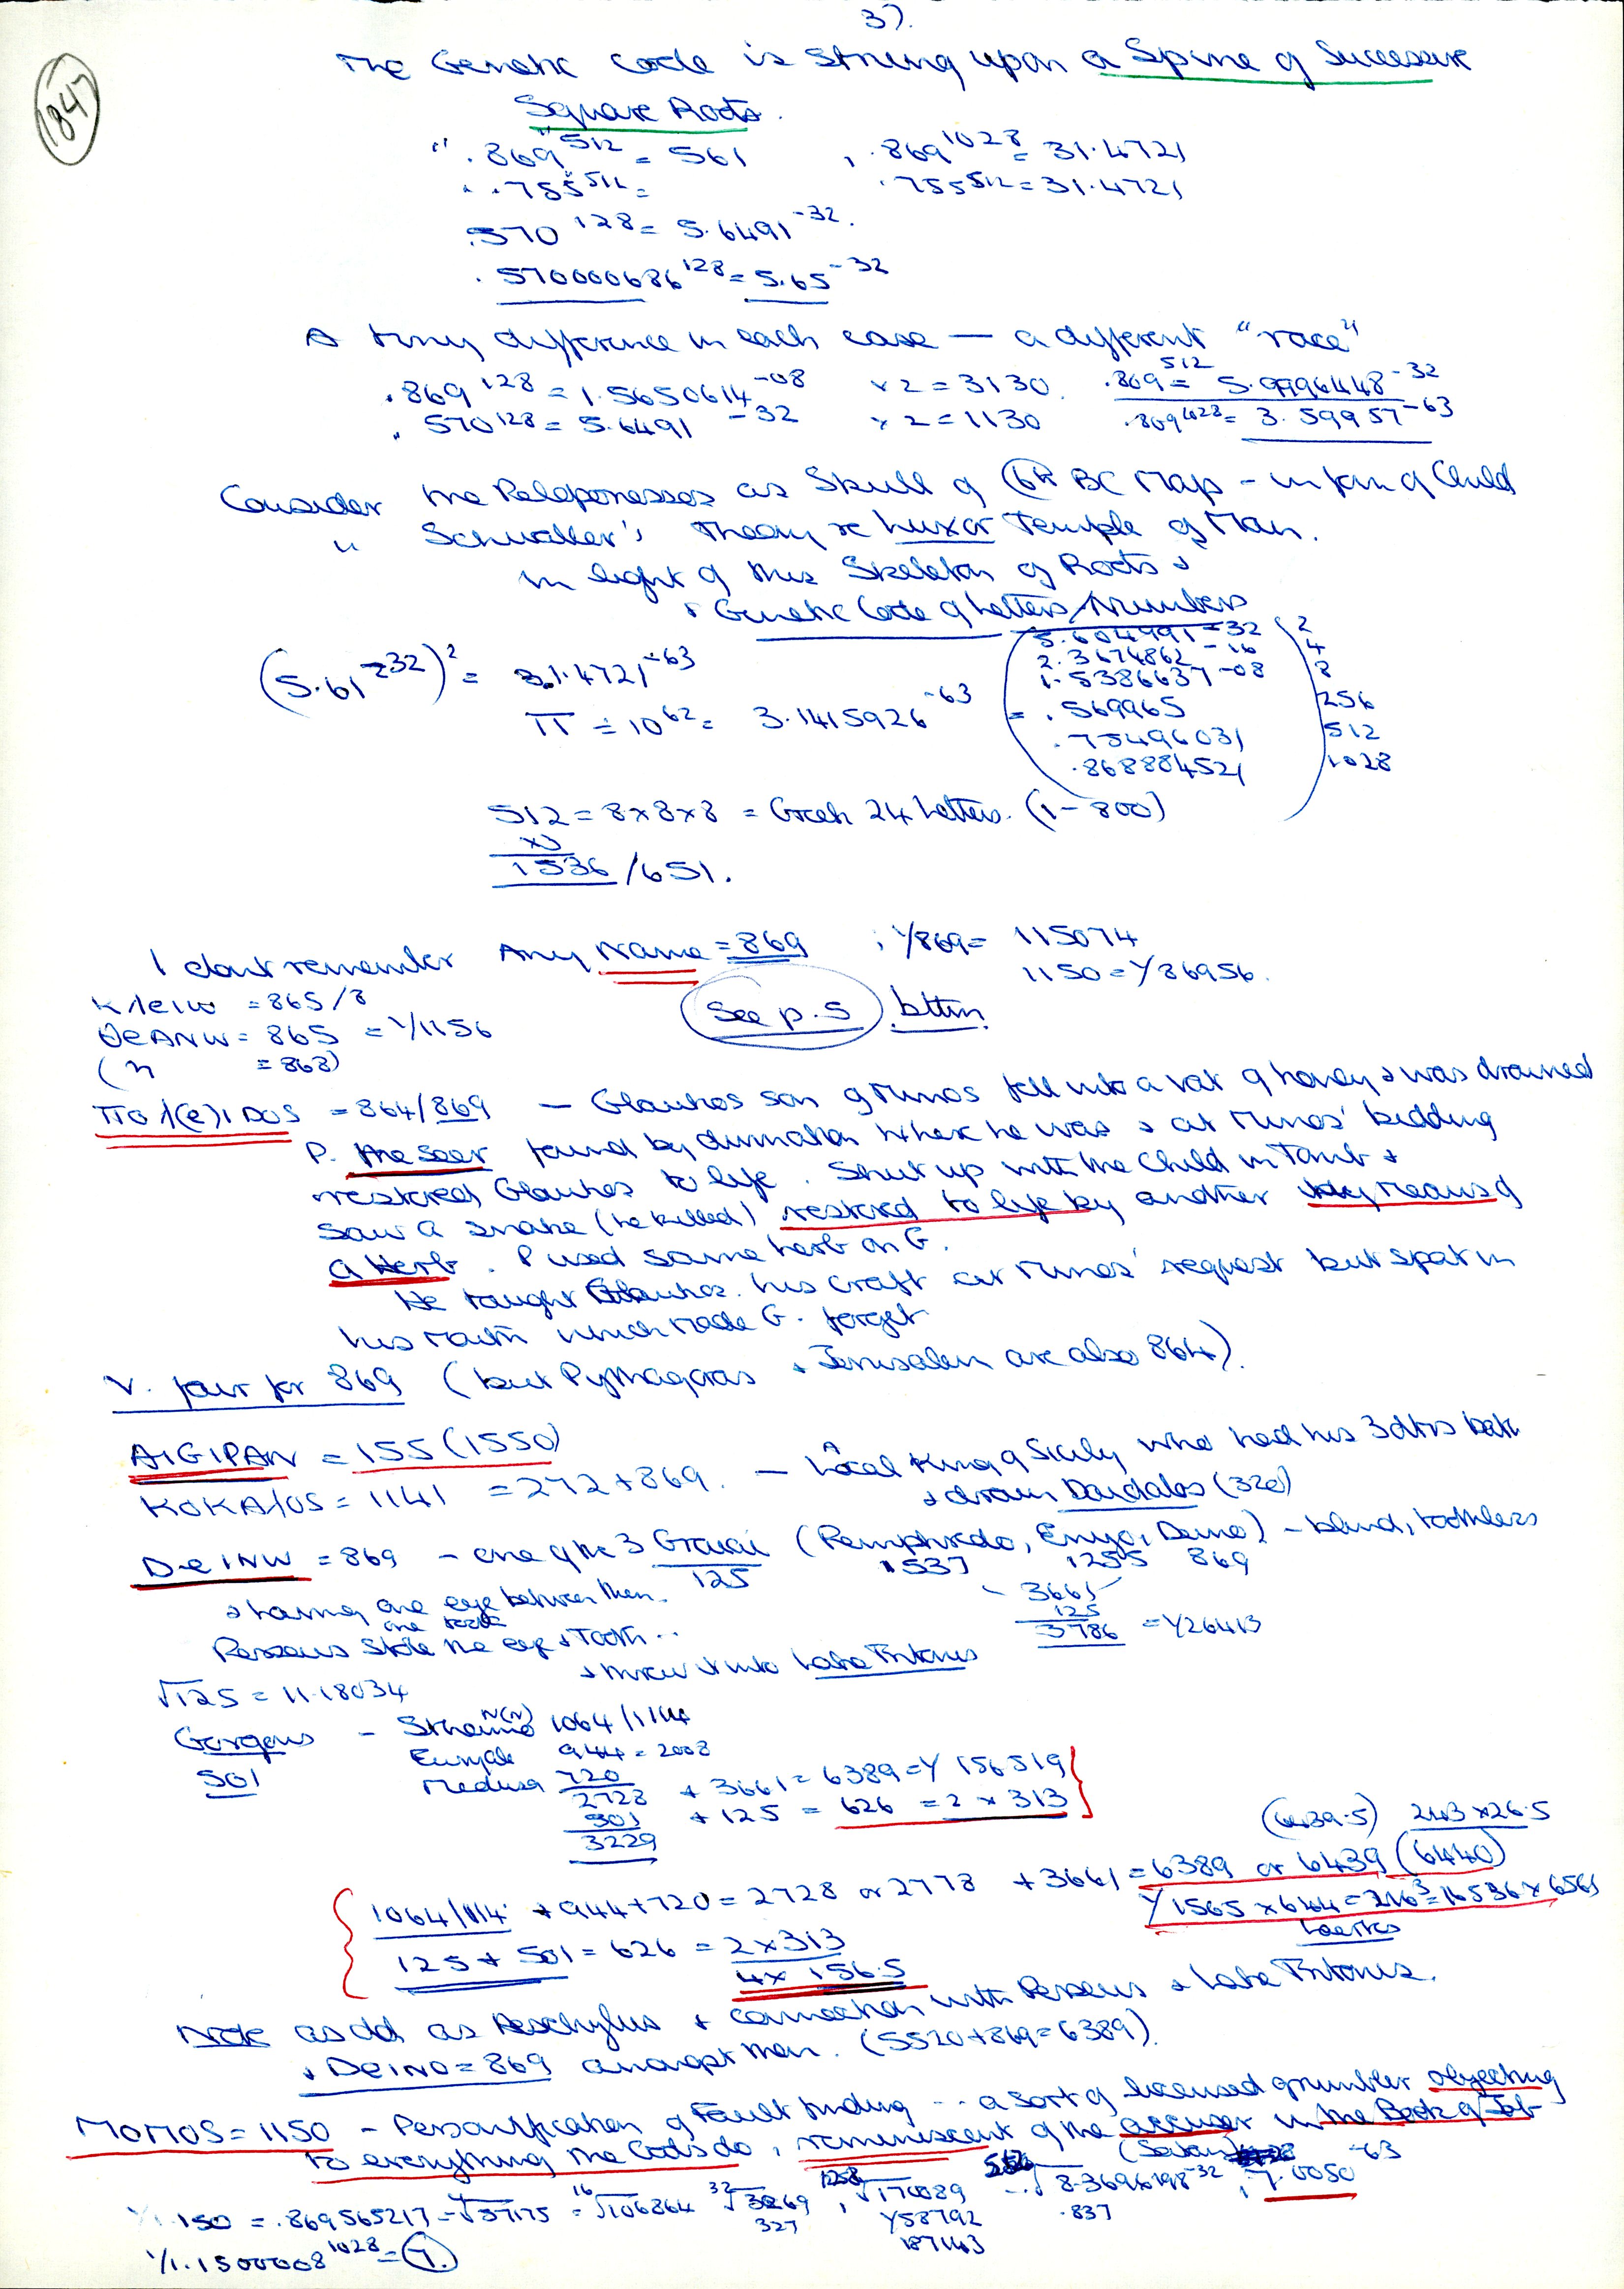 37.
1847
The Genetic Code is strung upon a Spine of Successive
Square Roots.
" .869^512 = 561 , .869^1028 = 31.4721
" .755^512 = .755^512 = 31.4721
.570^128 = 5.6491^-32.
.570000686^128 = 5.65^-32
A tiny difference in each case — a different "race"
.869^128 = 1.5650614^-08 x 2 = 3130. .869^512 = 5.9996448^-32
.570^128 = 5.6491^-32 x 2 = 1130 .869^1028 = 3.59957^-63
Consider the Peloponesses as Skull of 6th BC Map - in form of Child
" Schwaller's Theory re Luxor Temple of Man.
in light of this Skeleton of Roots &
& Genetic Code of Letters/Numbers
(5.61^-32)² = 31.4721^-63
π ÷ 10^62 = 3.1415926^-63
5.604991^-32 2
2.3674862^-16 4
1.5386637^-08 8
= .569965 256
.75496031 512
.868884521 1028
512 = 8x8x8 = Greek 24 letters. (1-800)
x3
1536/651.
I dont remember Any Name = 869 ; 1/869 = 115074
1150 = 1/86956.
KleiW = 865/8
θeANW = 865 = 1/1156
(n = 868)
See p.5 bttm.
ΠOλ(e)iDOS = 864/869 — Glaukos son of Minos fell into a vat of honey & was drowned
P. the seer found by divination where he was & at Minos' bidding
restored Glaukos to life. Shut up with the Child in Tomb &
saw a snake (he killed) restored to life by another by means of
a Herb. P used same herb on G.
He taught Glaukos his craft at Minos' request but spat in
his mouth which made G. forget
V. fair for 869 (but Pythagoras & Jerusalem are also 864).
AIGIPAN = 155 (1550)
KOKAλOS = 1141 = 272+869. — A Local King of Sicily who had his 3 dtrs
& drown Daidalos (320)
DeiNW = 869 - one of the 3 Graiai (Pemphredo, Enyo, Deino) - blind, toothless
125 1537 1255 869
& having one eye between them.
one tooth
- 3661
125
3786 = 1/26413
Perseus Stole the eye & Tooth..
& threw it into Lake Tritonis
√125 = 11.18034
Gorgons - Stheino N(N) 1064/1114
501 Euryale 944 = 2008
Medusa 720
2728 + 3661 = 6389 = 1/156519
501 + 125 = 626 = 2 x 313
3229
(6439.5) 243 x 26.5
1064/1114 + 944 + 720 = 2728 or 2778 + 3661 = 6389 or 6439 (6440)
1/1565 x 644 = 216³ = 16536 x 6561
Laertes
125 + 501 = 626 = 2 x 313
4 x 156.5
Note as old as Aeschylus & connection with Perseus & Lake Tritonis.
& DeiNO = 869 amongst them. (5520 + 869 = 6389).
MOMOS = 1150 - Personification of Fault finding - a sort of licensed grumbler objecting
to everything the Gods do, reminiscent of the accuser in the Book of Job
(Satan)
1/1.150 = .869565217 = √57175 = 16√106864 32√3269 , √170089 √8.3696198^-32 , 7.0050^-63
327 1/58792 .837
187143
1/1.1500008^1028 = 7.